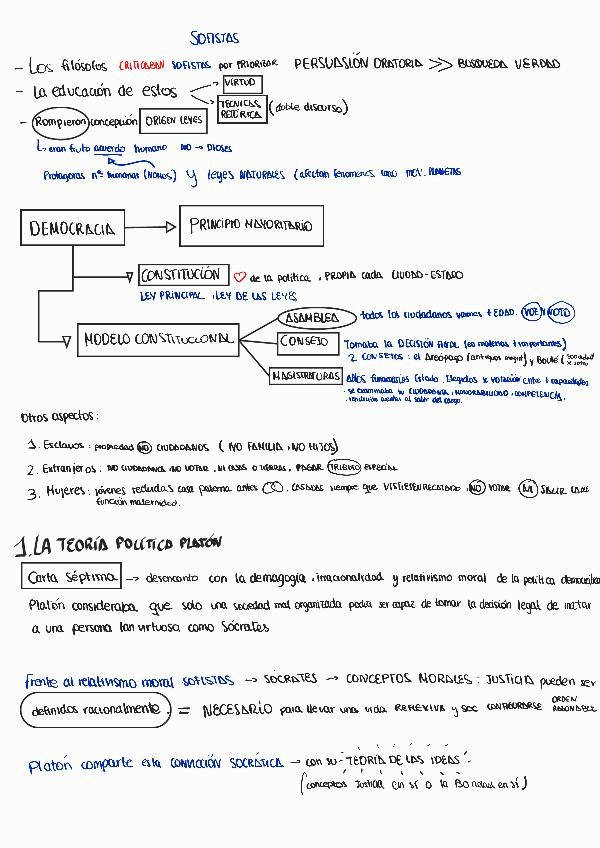 SOFISTAS
- Los filósofos CRITICABAN SOFISTAS por PRIORIZAR PERSUASIÓN ORATORIA >> BUSQUEDA VERDAD
- La educación de estos
VIRTUD
TECNICAS RETÓRICA (doble discurso)
- Rompieron concepción ORIGEN LEYES
eran fruto acuerdo humano NO → DIOSES
Protagoras nª humanas (NOMOS) y leyes NATURALES (afectan fenomenos como mov. PLANETAS
DEMOCRACIA
PRINCIPIO MAYORITARIO
CONSTITUCIÓN ♡ de la política, PROPIA cada CIUDAD-ESTADO
LEY PRINCIPAL, LEY DE LAS LEYES
MODELO CONSTITUCIONAL
ASAMBLEA todos los ciudadanos varones + EDAD. VOZ Y VOTO
CONSEJO Tomaba la DECISIÓN FINAL (en materias + importantes)
2 CONSEJOS: el Areópago (antiguos) y Boulé (
MAGISTRATURAS Altos funcionarios Estado. Elegidos x votación entre + capacitados
· se examinaba su CIUDADANIA, HONORABILIDAD, COMPETENCIA.
· rendición cuentas al salir del cargo.
Otros aspectos:
1. Esclavos: propiedad NO CIUDADANOS (NO FAMILIA, NO HIJOS)
2. Extranjeros: NO CIUDADANIA, NO VOTAR, NI CASAS O TIERRAS, PAGAR TRIBUTO ESPECIAL
3. Mujeres: jóvenes recluidas casa paterna antes, CASADAS siempre que VISTIESEN RECATADO, NO VOTAR NI SALIR CASA
función maternidad.
1. LA TEORÍA POLÍTICA PLATÓN
Carta Séptima → desencanto con la demagogía, irracionalidad y relativismo moral de la política democratica
Platón consideraba que solo una sociedad mal organizada podia ser capaz de tomar la decisión legal de matar
a una persona tan virtuosa como Sócrates
Frente al relativismo moral SOFISTAS → SOCRATES → CONCEPTOS MORALES: JUSTICIA pueden ser
definidos racionalmente. = NECESARIO para llevar una vida REFLEXIVA y soc CONFIGURARSE ORDEN RAZONABLE
Platón comparte esta CONVICCIÓN SOCRÁTICA → con su "TEORÍA DE LAS IDEAS"
(conceptos Justicia en sí o la Bondad en sí)